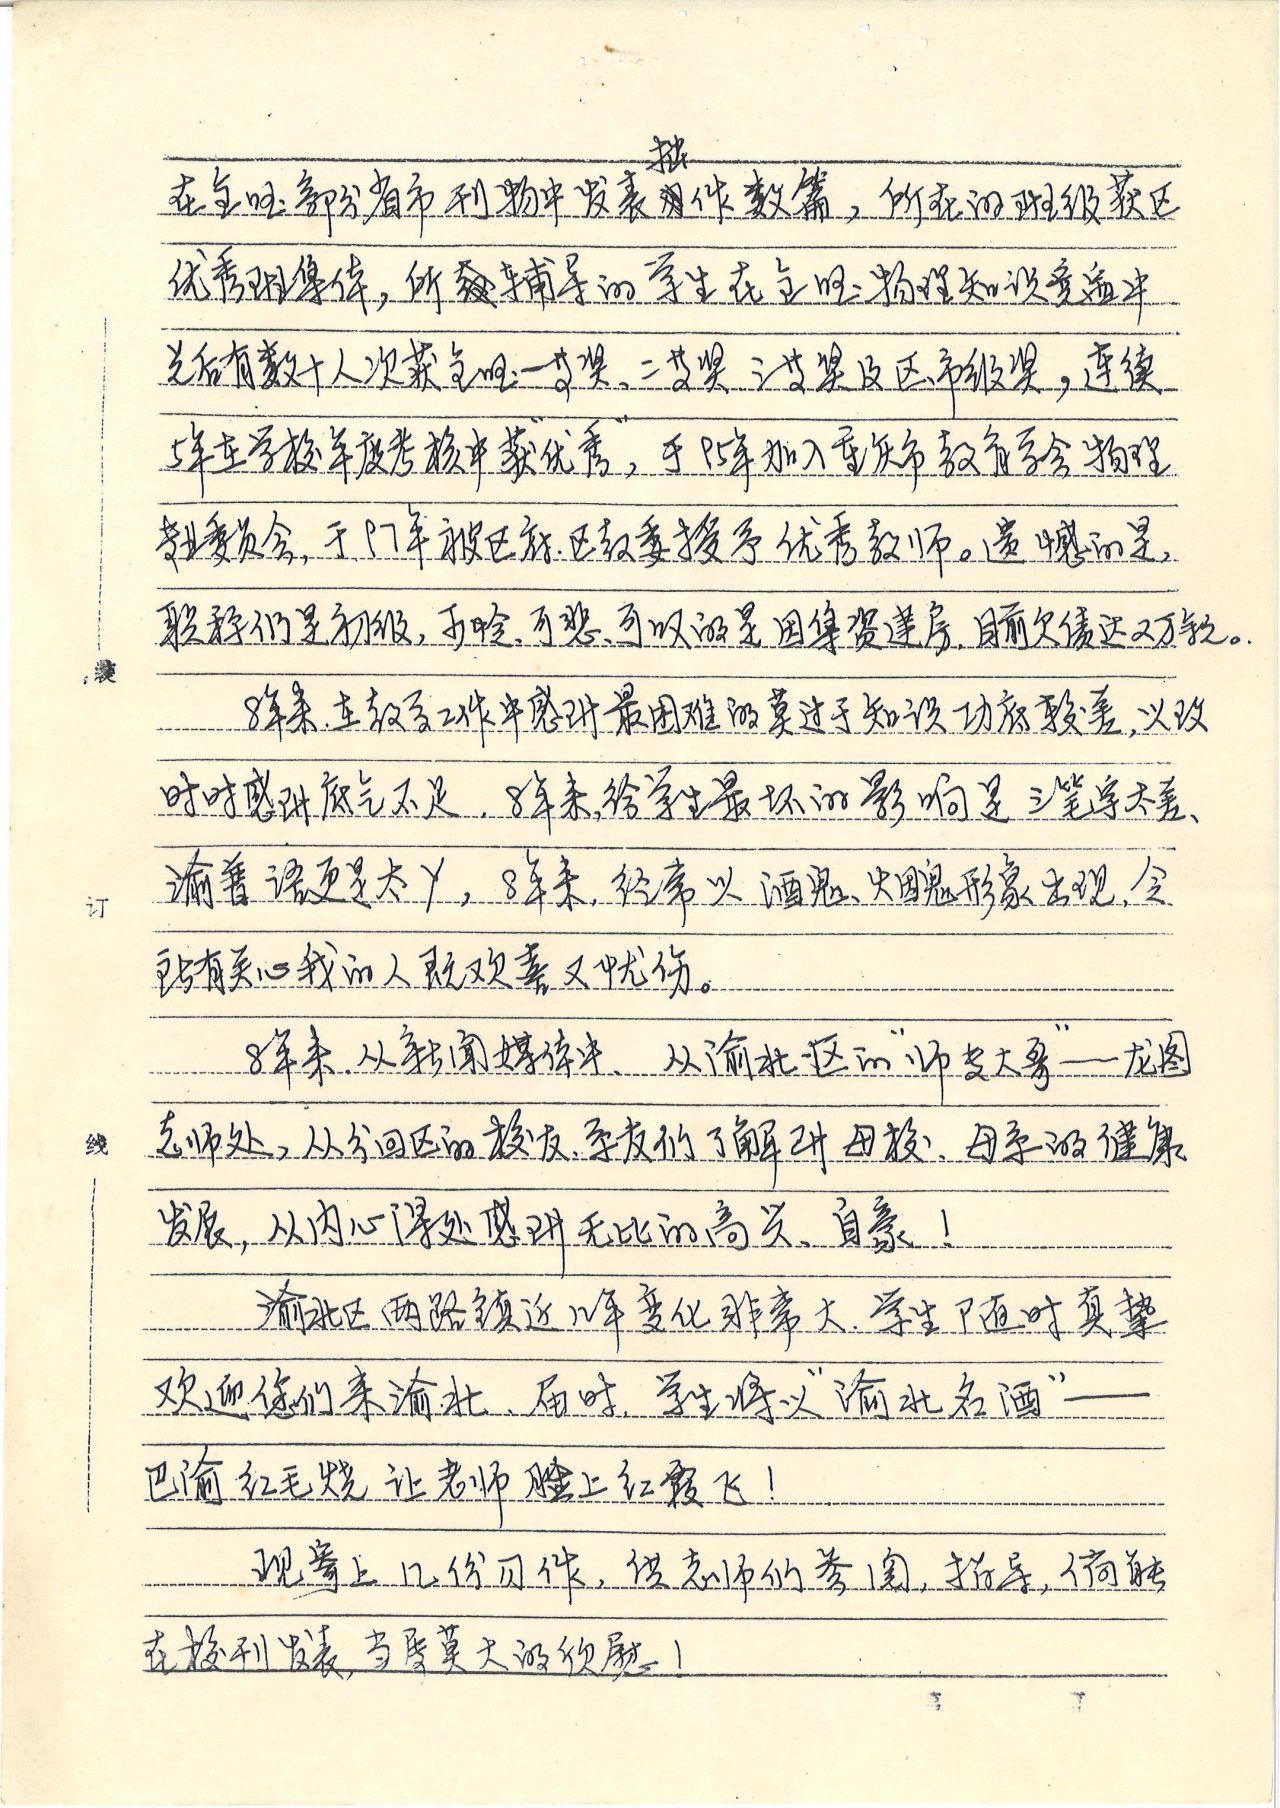 拙
在全国部分省市刊物中发表作数篇，所在的班级获区
优秀班集体，所辅导的学生在全国物理知识竞赛中
先后有数十人次获全国一等奖、二等奖三等奖及区、市级奖，连续
5年在学校年度考核中获“优秀”，于95年加入重庆市教育学会物理
专业委员会，于97年被区府、区教委授予优秀教师。遗憾的是，
职称们是初级，可怜、可悲、可叹的是因集资建房，目前欠债达又万元。
8年来，在教学工作中感到最困难的莫过于知识功底较差，以致
时时感到底气不足，8年来，给学生最坏的影响是三笔字太差、
渝普语更是太丫，8年来，经常以酒鬼、烟鬼形象出现，令
所有关心我的人既欢喜又忧伤。
8年来，从新闻媒体中、从渝北区的“师专大哥”——龙图
老师处，从分回区的校友、系友们了解到母校、母系的健康
发展，从内心深处感到无比的高兴、自豪！
渝北区两路镇近几年变化非常大，学生随时真挚
欢迎你们来渝北，届时，学生将以“渝北名酒”——
巴渝红毛烧让老师脸上红霞飞！
现寄上几份习作，供老师们参阅，指导，倘能
在校刊发表，当是莫大的欣慰！
装
订
线